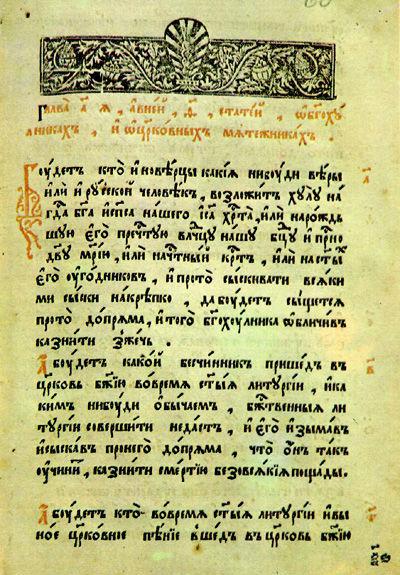 Глава̀ а҃ я , авне́й , ѳ҃ , стате́й , ѡ҆бг҃охꙋ́
лникахъ , и҆ ѡ҆цр҃ко́вныхъ мѧте́жникахъ .
Боу́детъ кто̀ и҆нове́рцы какі́ѧ нибоу́ди ве́ры
и҆лѝ и҆рꙋ́ской человѣ́къ , возложи́тъ хꙋлꙋ̀ на
гдⷭ҇а бг҃а и҆сп҃са нашего і҆с҃а хрⷭ҇та̀ , и҆лѝ нарождь
шꙋю е҆го̀ прчⷭ҇тꙋю влⷣчцꙋ на́шꙋ бц҃ꙋ и҆ прⷭ҇но
дв҃ꙋ мр҃і́ю , и҆лѝ на чтⷭ҇ны́й крⷭ҇тъ , и҆лѝ на ст҃ы́хъ
е҆го̀ оу҆го́дниковъ , и҆ про то̀ сы́скивати всѧ́ки
ми сы́ски накрѣ́пко , да боу́детъ сы́щетсѧ
про то̀ допрѧ́ма , и҆ того̀ бг҃охоу́лника ѡ҆бличи́въ
казни́ти зже́чь .
А боу́детъ како́й безчи́нникъ прише́дъ въ
цр҃ковь бж҃ію во времѧ ст҃ы́ѧ литꙋргі́и , и҆ ка
ки́мъ нибоу́ди ѡ҆бы́чаемъ , бжⷭ҇твенныѧ ли
тꙋргі́и соверши́ти не да́стъ , и҆ е҆го̀ и҆зыма́въ
и҆ сыска́въ про него̀ допрѧ́ма , что̀ ѻ҆́нъ та́къ
оу҆чини́тъ , казни́ти сме́ртію безо всѧ́кіѧ поща́ды .
А боу́детъ кто̀ во времѧ ст҃ы́ѧ литꙋргі́и и҆ вы
но́е цр҃ко́вное пѣ́ніе вше́дъ въ цр҃ковь бж҃ію
а҃
в҃